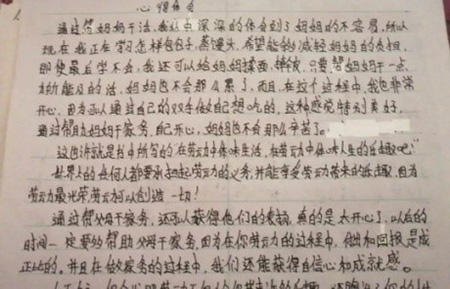 心得体会
通过帮妈妈干活,我深深的体会到了妈妈的不容易,所以
现在我正在学习怎样包包子,蒸馒头,希望能够减轻妈妈的负担,
即使最后学不会,我还可以给妈妈揉面,只要帮妈妈干一点
力所能及的活,妈妈也不会那么累了,而且,在这个过程中,我也非常
开心,因为可以通过自己的双手做自己想吃的,这种感觉特别美好,
通过帮助妈妈干家务,自己开心,妈妈也不会那么辛苦了。
这也许就是书中所写的"在劳动中体味生活,在劳动中体味人生的乐趣吧!"
世界上的任何人都要承担起劳动的义务,并能享受劳动带来的乐趣,因为
劳动最光荣劳动可以创造一切!
通过帮父母干家务,还可以获得他们的表扬,真的是太开心了,以后的
时间一定要多帮助父母干家务,因为在你劳动的过程中,付出和回报是成
正比的。并且在做家务的过程中,我们还能获得自信心和成就感。